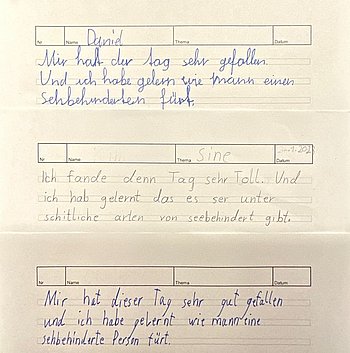 Nr Name David Thema Datum
Mir hatt der tag sehr gefallen.
Und ich habe gelern wie mann einen
sehbehinderten fürt.
Nr Name Thema Sine Datum
Ich fande denn Tag sehr Toll. Und
ich hab gelernt das es ser unter
schitliche arten von seebehindert gibt.
Nr Name Thema Datum
Mir hat dieser Tag sehr gut gefallen
und ich habe gelernt wie mann eine
sehbehinderte Person fürt.